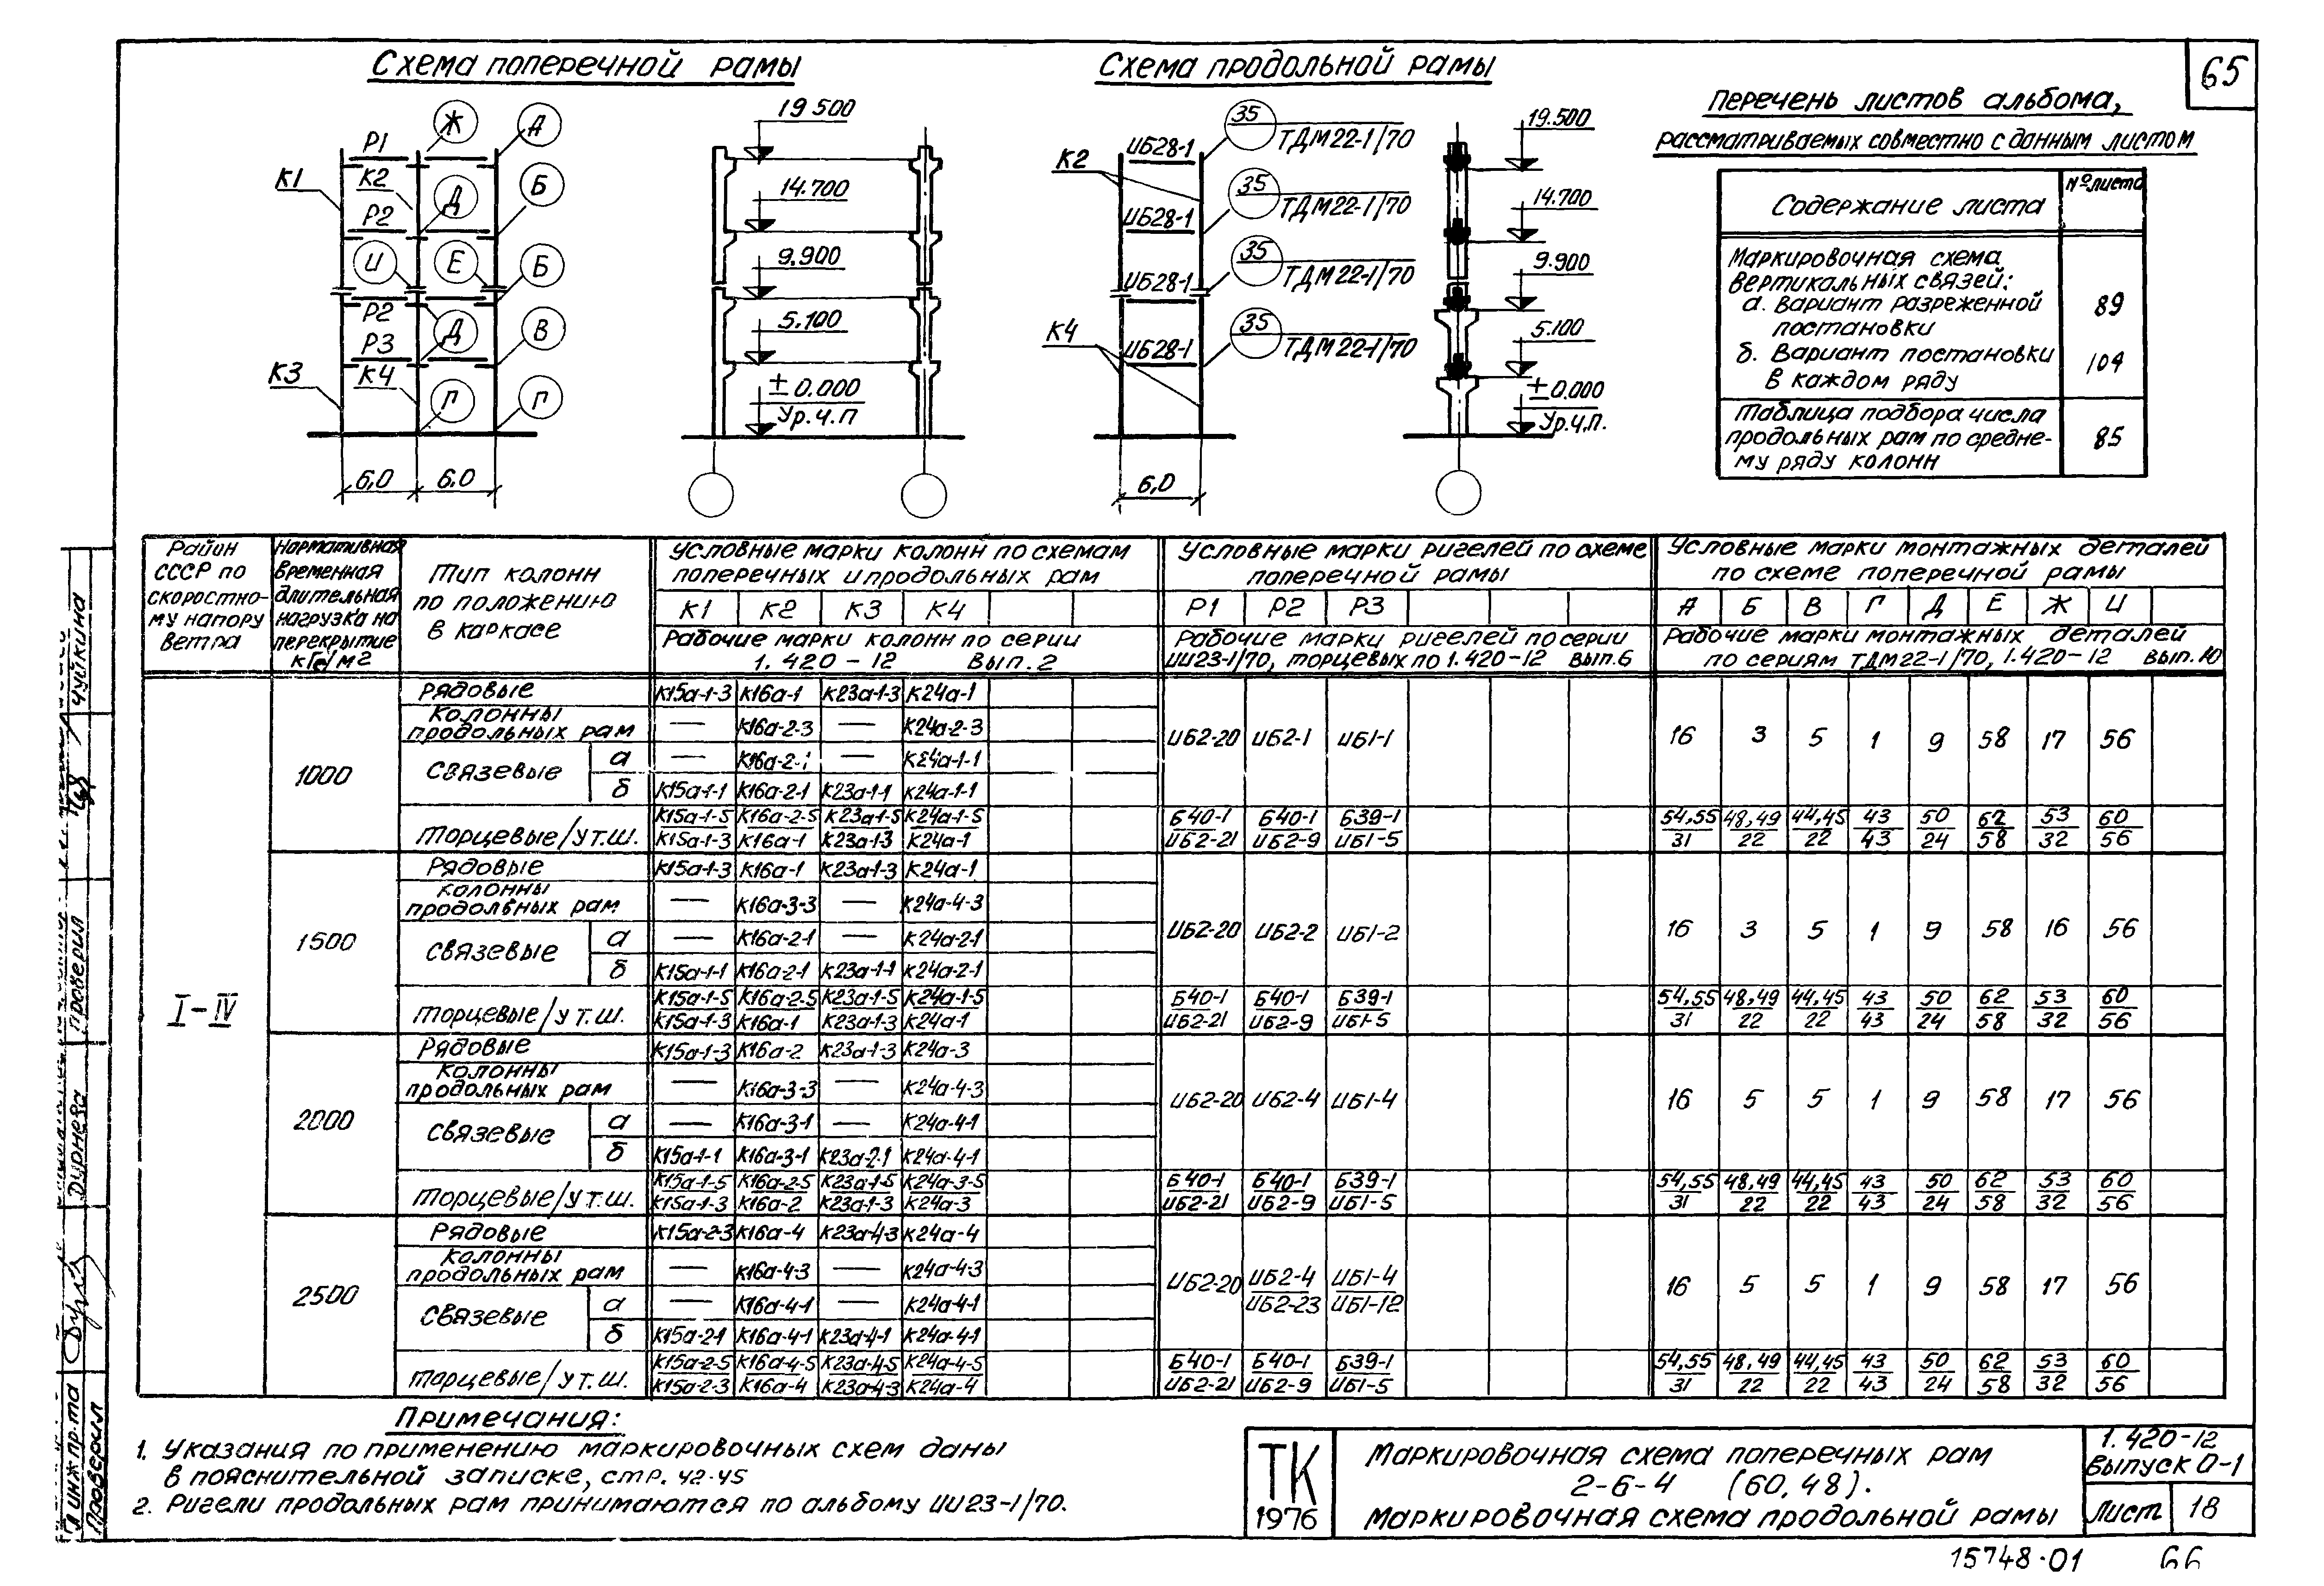 65
Схема поперечной рамы
Схема продольной рамы
Перечень листов альбома,
рассматриваемых совместно с данным листом
Содержание листа № листа
Маркировочная схема
вертикальных связей:
а. Вариант разреженной
постановки 89
б. Вариант постановки
в каждом ряду 104
Таблица подбора числа
продольных рам по средне-
му ряду колонн 85
Ж А
Р1
К1 К2 Д Б
Р2
И Е Б
Р2
Р3 Д В
К3 К4 Г Г
6,0 6.0
19 500
14.700
9.900
5.100
±0.000
Ур.ч.п
К2
К4
ИБ28-1 35 ТДМ22-1/70
ИБ28-1 35 ТДМ22-1/70
ИБ28-1 35 ТДМ22-1/70
ИБ28-1 35 ТДМ22-1/70
6,0
19.500
14.700
9.900
5.100
±0.000
Ур.ч.п.
Район
СССР по
скоростно-
му напору
ветра
Нормативная
временная
длительная
нагрузка на
перекрытие
кГс/м2
Тип колонн
по положению
в каркасе
Условные марки колонн по схемам
поперечных и продольных рам
К1 К2 К3 К4
Рабочие марки колонн по серии
1. 420-12 вып. 2
Условные марки ригелей по схеме
поперечной рамы
Р1 Р2 Р3
Рабочие марки ригелей по серии
ИИ23-1/70, торцевых по 1.420-12 вып.6
Условные марки монтажных деталей
по схеме поперечной рамы
А Б В Г Д Е Ж И
Рабочие марки монтажных деталей
по сериям ТДМ22-1/70, 1.420-12 вып.10
I-IV
1000
Рядовые К15а-1-3 К16а-1 К23а-1-3 К24а-1
Колонны
продольных рам — К16а-2-3 — К24а-2-3
ИБ2-20 ИБ2-1 ИБ1-1 16 3 5 1 9 58 17 56
Связевые а — К16а-2-1 — К24а-1-1
б К15а-1-1 К16а-2-1 К23а-1-1 К24а-1-1
Торцевые/у т.ш.
К15а-1-5 К16а-2-5 К23а-1-5 К24а-1-5 Б40-1 Б40-1 Б39-1 54,55 48,49 44,45 43 50 62 53 60
К15а-1-3 К16а-1 К23а-1-3 К24а-1 ИБ2-21 ИБ2-9 ИБ1-5 31 22 22 43 24 58 32 56
1500
Рядовые К15а-1-3 К16а-1 К23а-1-3 К24а-1
Колонны
продольных рам — К16а-3-3 — К24а-4-3
ИБ2-20 ИБ2-2 ИБ1-2 16 3 5 1 9 58 16 56
Связевые а — К16а-2-1 — К24а-2-1
б К15а-1-1 К16а-2-1 К23а-1-1 К24а-2-1
Торцевые/у т.ш.
К15а-1-5 К16а-2-5 К23а-1-5 К24а-1-5 Б40-1 Б40-1 Б39-1 54,55 48,49 44,45 43 50 62 53 60
К15а-1-3 К16а-1 К23а-1-3 К24а-1 ИБ2-21 ИБ2-9 ИБ1-5 31 22 22 43 24 58 32 56
2000
Рядовые К15а-1-3 К16а-2 К23а-1-3 К24а-3
Колонны
продольных рам — К16а-3-3 — К24а-4-3
ИБ2-20 ИБ2-4 ИБ1-4 16 5 5 1 9 58 17 56
Связевые а — К16а-3-1 — К24а-4-1
б К15а-1-1 К16а-3-1 К23а-2-1 К24а-4-1
Торцевые/у т.ш.
К15а-1-5 К16а-2-5 К23а-1-5 К24а-3-5 Б40-1 Б40-1 Б39-1 54,55 48,49 44,45 43 50 62 53 60
К15а-1-3 К16а-2 К23а-1-3 К24а-3 ИБ2-21 ИБ2-9 ИБ1-5 31 22 22 43 24 58 32 56
2500
Рядовые К15а-2-3 К16а-4 К23а-4-3 К24а-4
Колонны
продольных рам — К16а-4-3 — К24а-4-3
ИБ2-20 ИБ2-4 ИБ1-4 16 5 5 1 9 58 17 56
ИБ2-23 ИБ1-12
Связевые а — К16а-4-1 — К24а-4-1
б К15а-2-1 К16а-4-1 К23а-4-1 К24а-4-1
Торцевые/у т.ш.
К15а-2-5 К16а-4-5 К23а-4-5 К24а-4-5 Б40-1 Б40-1 Б39-1 54,55 48,49 44,45 43 50 62 53 60
К15а-2-3 К16а-4 К23а-4-3 К24а-4 ИБ2-21 ИБ2-9 ИБ1-5 31 22 22 43 24 58 32 56
Примечания:
1. Указания по применению маркировочных схем даны
в пояснительной записке, стр. 42-45
2. Ригели продольных рам принимаются по альбому ИИ23-1/70.
ТК
1976
Маркировочная схема поперечных рам
2-6-4 (60,48).
Маркировочная схема продольной рамы
1.420-12
Выпуск 0-1
Лист 18
15748-01 66
Чуйкина
Проверил
Дурнева
Гл инж пр-та
Проверил